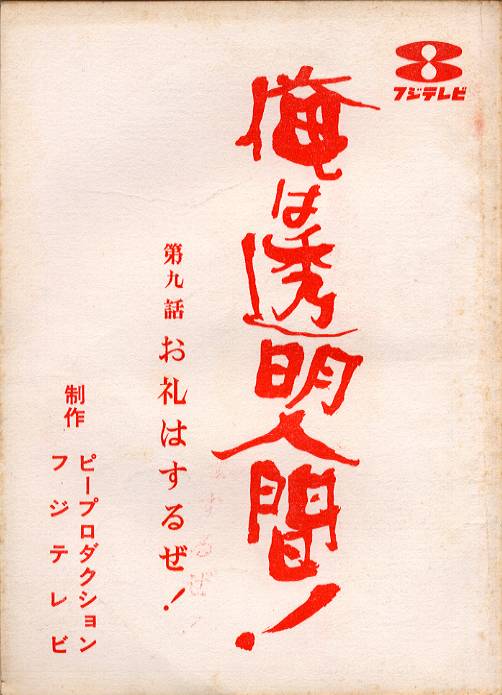 フジテレビ
俺は透明人間!
第九話 お礼はするぜ!
制作 ピープロダクション
フジテレビ